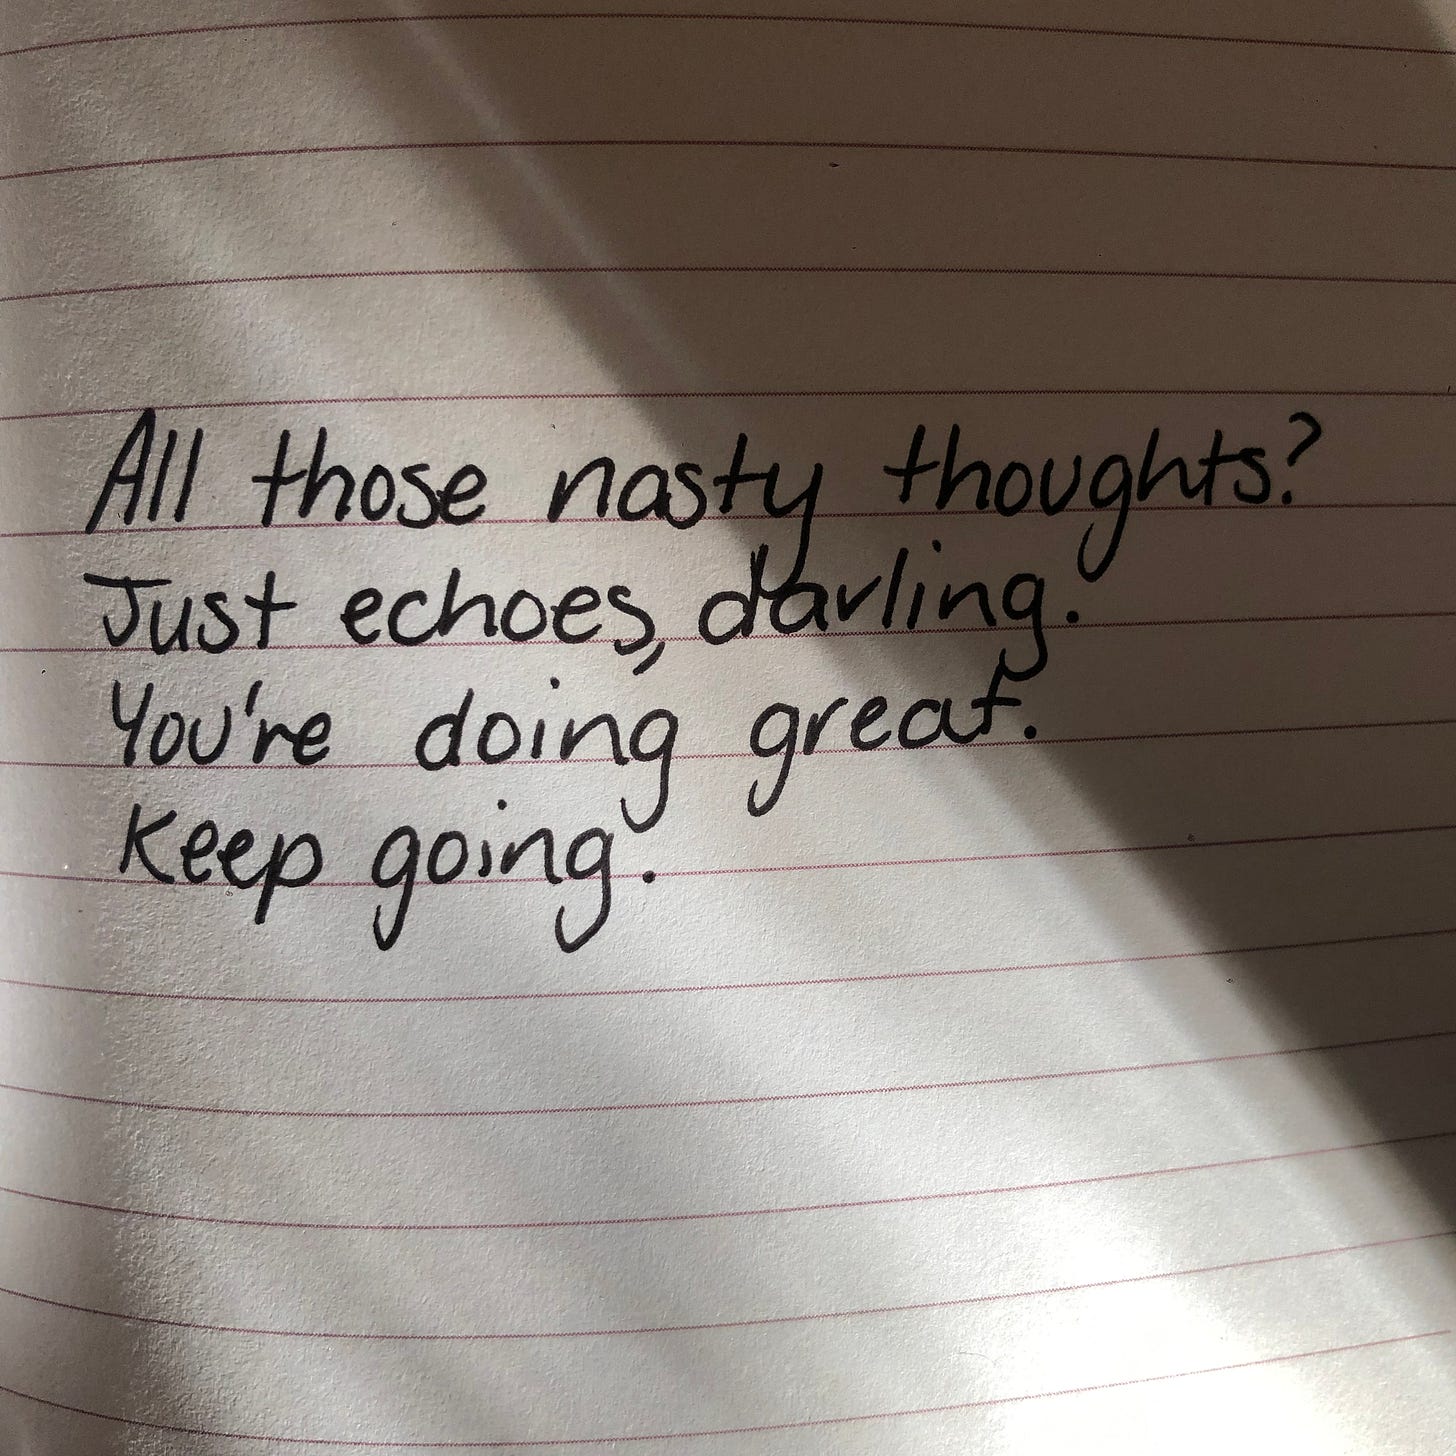 All those nasty thoughts?
Just echoes, darling.
You're doing great.
Keep going.